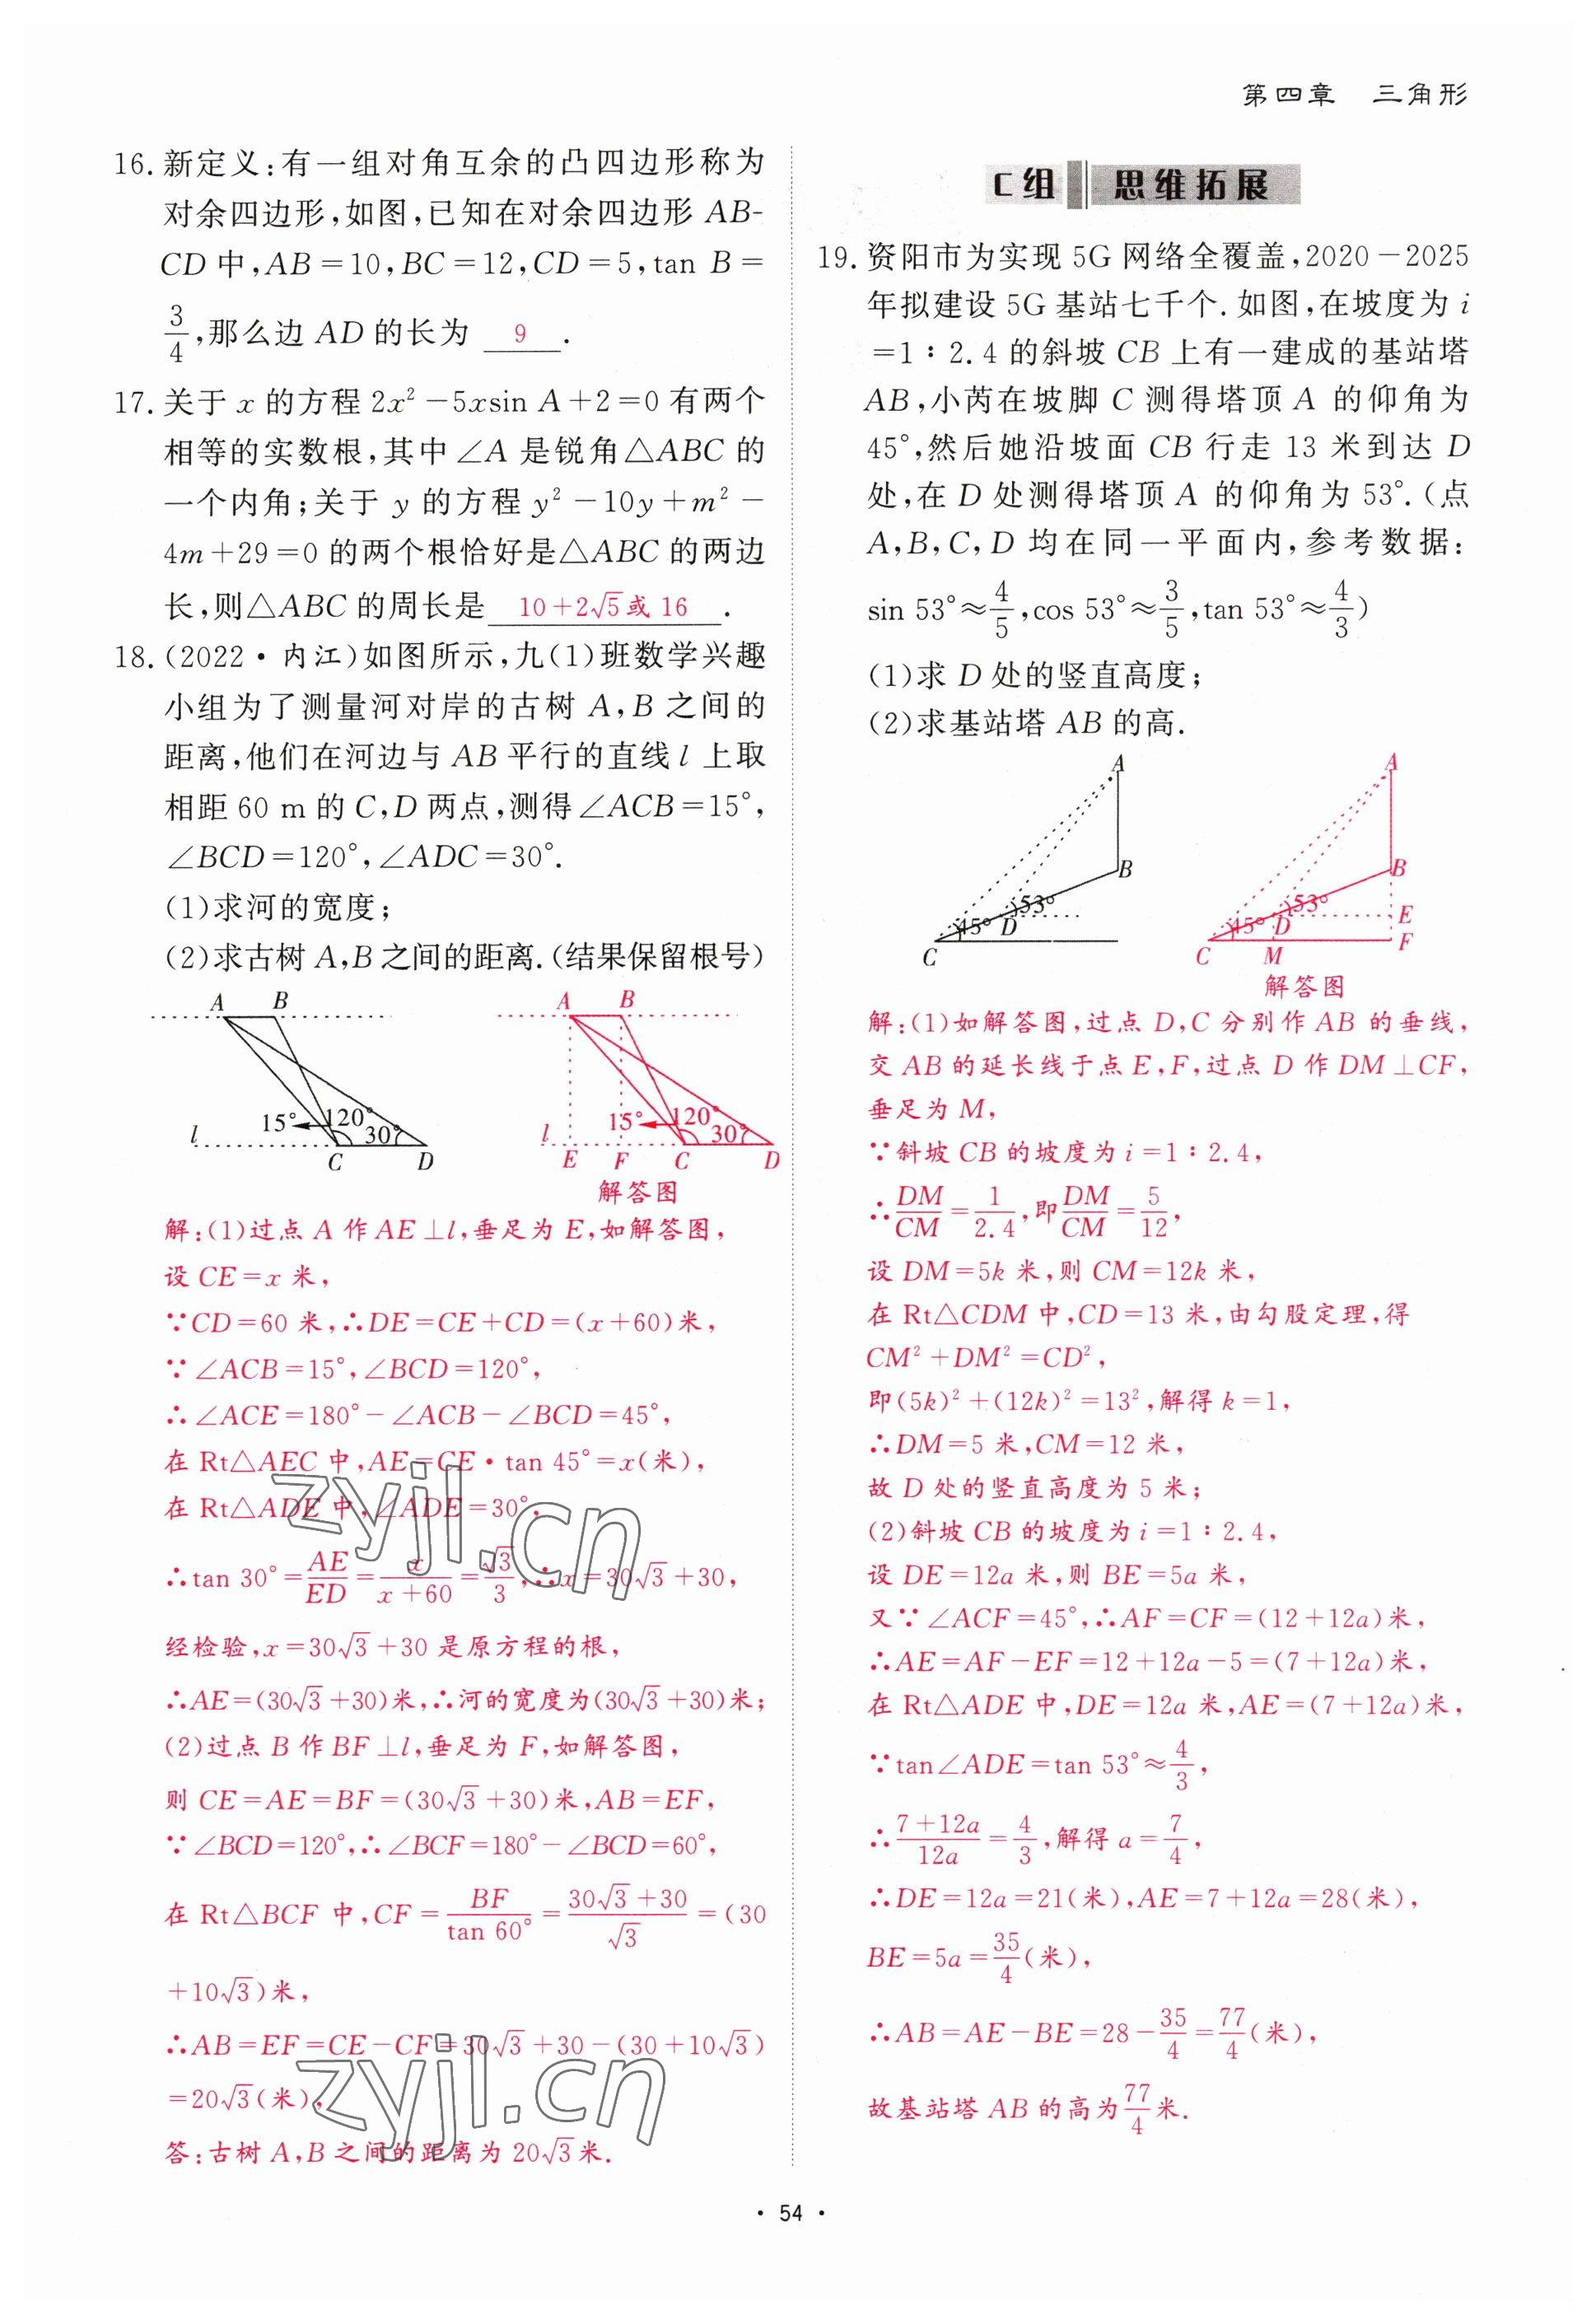 第四章 三角形
16. 新定义:有一组对角互余的凸四边形称为
对余四边形,如图,已知在对余四边形 AB-
CD 中,AB=10,BC=12,CD=5,tan B=
3/4,那么边 AD 的长为 9 .
17. 关于 x 的方程 2x²-5xsin A+2=0 有两个
相等的实数根,其中∠A 是锐角△ABC 的
一个内角;关于 y 的方程 y²-10y+m²-
4m+29=0 的两个根恰好是△ABC 的两边
长,则△ABC 的周长是 10+2√5或 16 .
18. (2022·内江)如图所示,九(1)班数学兴趣
小组为了测量河对岸的古树 A,B 之间的
距离,他们在河边与 AB 平行的直线 l 上取
相距 60 m 的 C,D 两点,测得∠ACB=15°,
∠BCD=120°,∠ADC=30°.
(1)求河的宽度;
(2)求古树 A,B 之间的距离.(结果保留根号)
A B
15° 120° 30°
l C D
A B
15° 120° 30°
l E F C D
解答图
解:(1)过点 A 作 AE⊥l,垂足为 E,如解答图,
设 CE=x 米,
∵CD=60 米,∴DE=CE+CD=(x+60)米,
∵∠ACB=15°,∠BCD=120°,
∴∠ACE=180°-∠ACB-∠BCD=45°,
在 Rt△AEC 中,AE=CE·tan 45°=x(米),
在 Rt△ADE 中,∠ADE=30°,
∴tan 30°=AE/ED=x/(x+60)=√3/3,∴x=30√3+30,
经检验,x=30√3+30 是原方程的根,
∴AE=(30√3+30)米,∴河的宽度为(30√3+30)米;
(2)过点 B 作 BF⊥l,垂足为 F,如解答图,
则 CE=AE=BF=(30√3+30)米,AB=EF,
∵∠BCD=120°,∴∠BCF=180°-∠BCD=60°,
在 Rt△BCF 中,CF=BF/tan 60°=(30√3+30)/√3=(30
+10√3)米,
∴AB=EF=CE-CF=30√3+30-(30+10√3)
=20√3(米),
答:古树 A,B 之间的距离为 20√3米.
C组 思维拓展
19. 资阳市为实现 5G 网络全覆盖,2020-2025
年拟建设 5G 基站七千个.如图,在坡度为 i
=1∶2.4 的斜坡 CB 上有一建成的基站塔
AB,小芮在坡脚 C 测得塔顶 A 的仰角为
45°,然后她沿坡面 CB 行走 13 米到达 D
处,在 D 处测得塔顶 A 的仰角为 53°.(点
A,B,C,D 均在同一平面内,参考数据:
sin 53°≈4/5,cos 53°≈3/5,tan 53°≈4/3)
(1)求 D 处的竖直高度;
(2)求基站塔 AB 的高.
A
B
53°
45° D
C
A
B
53°
45° D E
C M F
解答图
解:(1)如解答图,过点 D,C 分别作 AB 的垂线,
交 AB 的延长线于点 E,F,过点 D 作 DM⊥CF,
垂足为 M,
∵斜坡 CB 的坡度为 i=1∶2.4,
∴DM/CM=1/2.4,即DM/CM=5/12,
设 DM=5k 米,则 CM=12k 米,
在 Rt△CDM 中,CD=13 米,由勾股定理,得
CM²+DM²=CD²,
即(5k)²+(12k)²=13²,解得 k=1,
∴DM=5 米,CM=12 米,
故 D 处的竖直高度为 5 米;
(2)斜坡 CB 的坡度为 i=1∶2.4,
设 DE=12a 米,则 BE=5a 米,
又∵∠ACF=45°,∴AF=CF=(12+12a)米,
∴AE=AF-EF=12+12a-5=(7+12a)米,
在 Rt△ADE 中,DE=12a 米,AE=(7+12a)米,
∵tan∠ADE=tan 53°≈4/3,
∴(7+12a)/12a=4/3,解得 a=7/4,
∴DE=12a=21(米),AE=7+12a=28(米),
BE=5a=35/4(米),
∴AB=AE-BE=28-35/4=77/4(米),
故基站塔 AB 的高为77/4米.
zyjl.cn
zyjl.cn
·54·